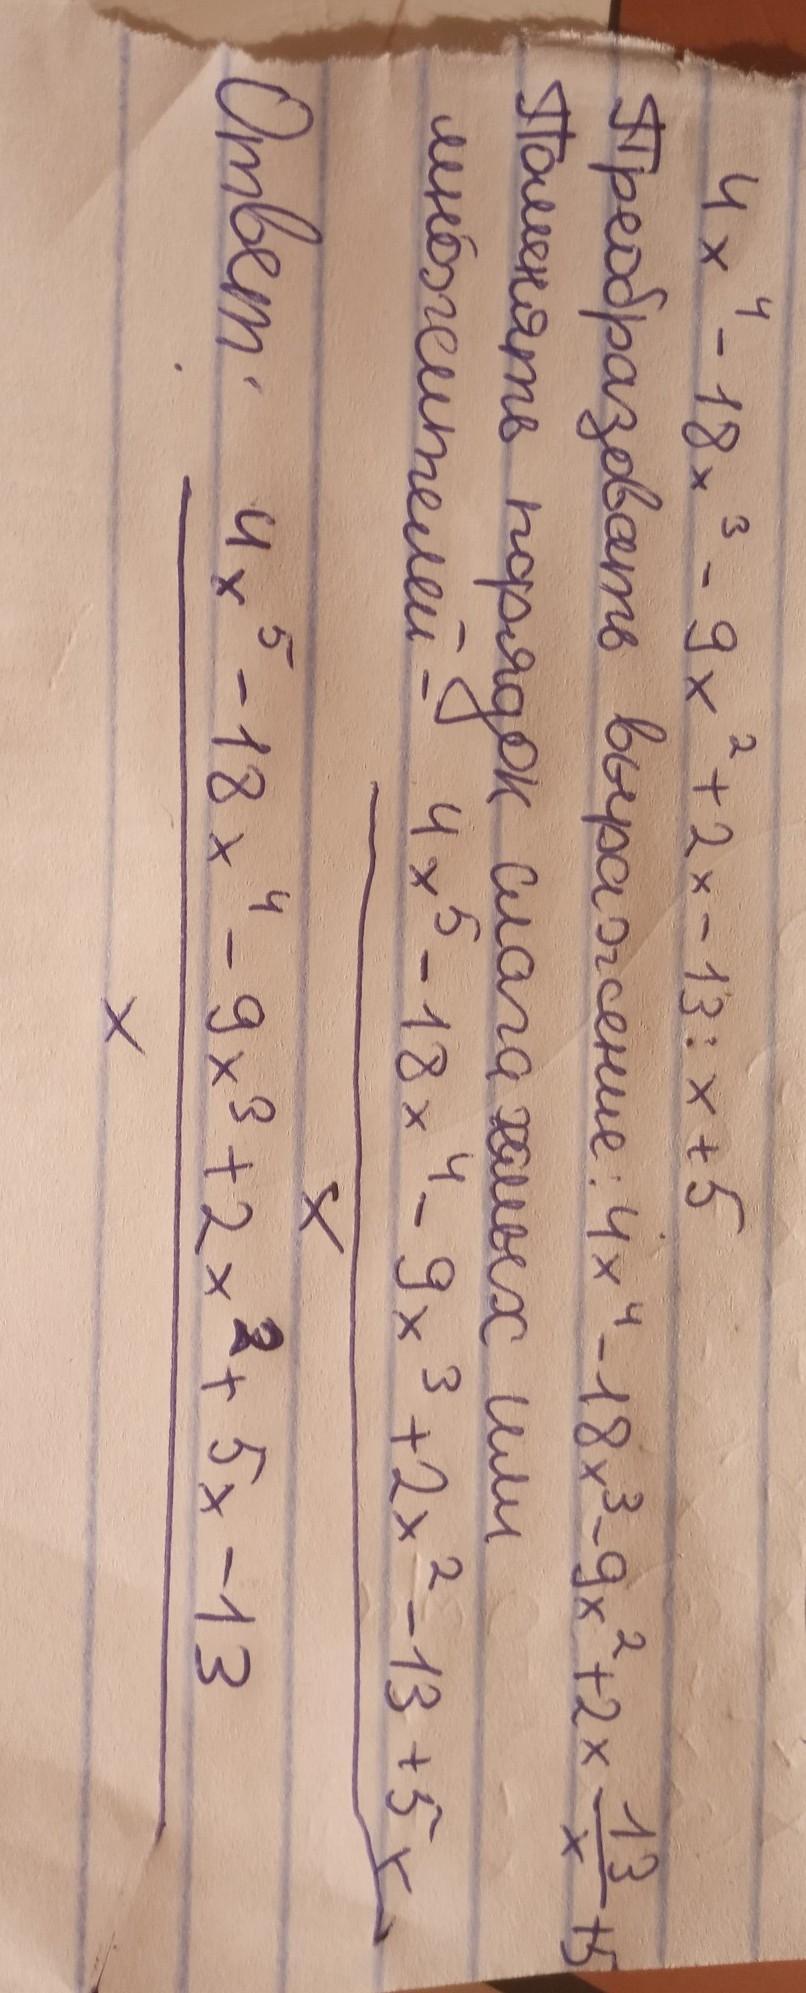 4x⁴ - 18x³ - 9x² + 2x - 13 : x + 5
Преобразовать выражение: 4x⁴ - 18x³ - 9x² + 2x - 13/x + 5
Поменять порядок слагаемых или
множителей - 4x⁵ - 18x⁴ - 9x³ + 2x² - 13 + 5x
x
Ответ: 4x⁵ - 18x⁴ - 9x³ + 2x² + 5x - 13
x